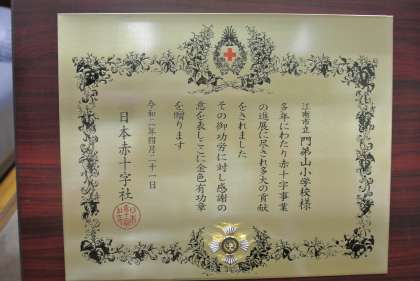 江南市立 門弟山小学校様
多年にわたり赤十字事業
の進展に尽され多大の貢献
をされました
その御功労に対し感謝の
意を表しここに金色有功章
を贈ります
令和二年四月二十一日
日本赤十字社